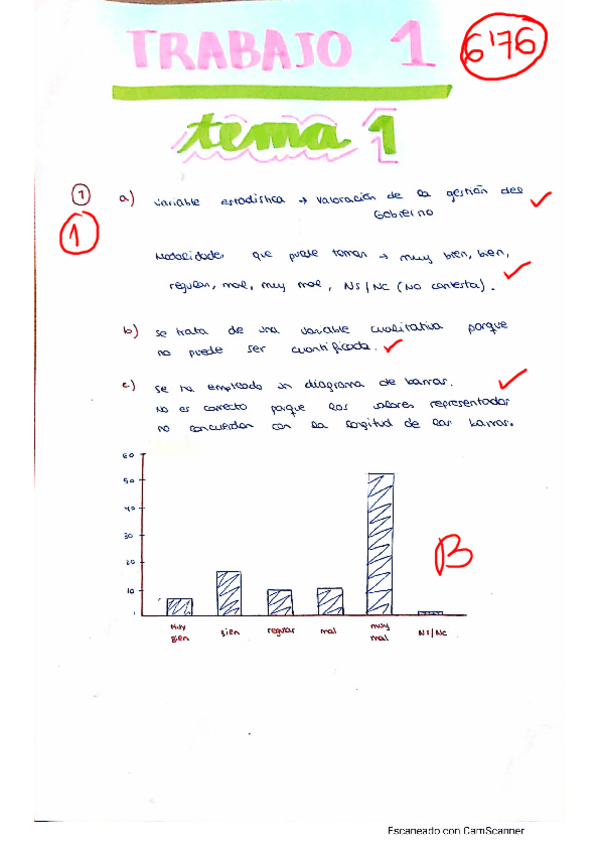 TRABAJO 1
6'76
tema 1
1
a) variable estadística → valoración de la gestión del
Gobierno
1
Modalidades que puede tomar → muy bien, bien,
regular, mal, muy mal, NS/NC (No contesta).
b) se trata de una variable cualitativa porque
no puede ser cuantificada.
c) se ha empleado un diagrama de barras.
No es correcto porque los valores representados
no concuerdan con la longitud de las barras.
60
50
40
30
20
10
B
Muy bien
Bien
regular
mal
muy mal
NS/NC
Escaneado con CamScanner